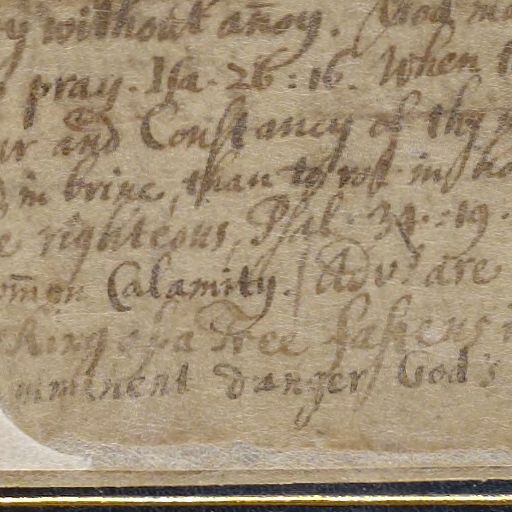 y without an̄oy. God
pray. Isa. 26:16. When
ur and Constancy of thy
in brine, than to rot in
e righteous, Psal. 34:19.
om̄on Calamity. Adv. are
king of a Tree fastens
mminent danger God's